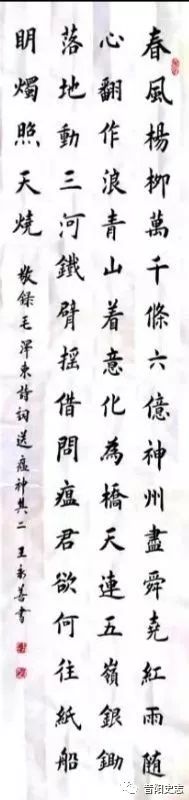 春風楊柳萬千條六億神州盡舜堯紅雨隨
心翻作浪青山着意化為橋天連五嶺銀鋤
落地動三河鐵臂搖借問瘟君欲何往紙船
明燭照天燒
敬錄毛澤東詩詞送瘟神其二 王善書
昔阳史志